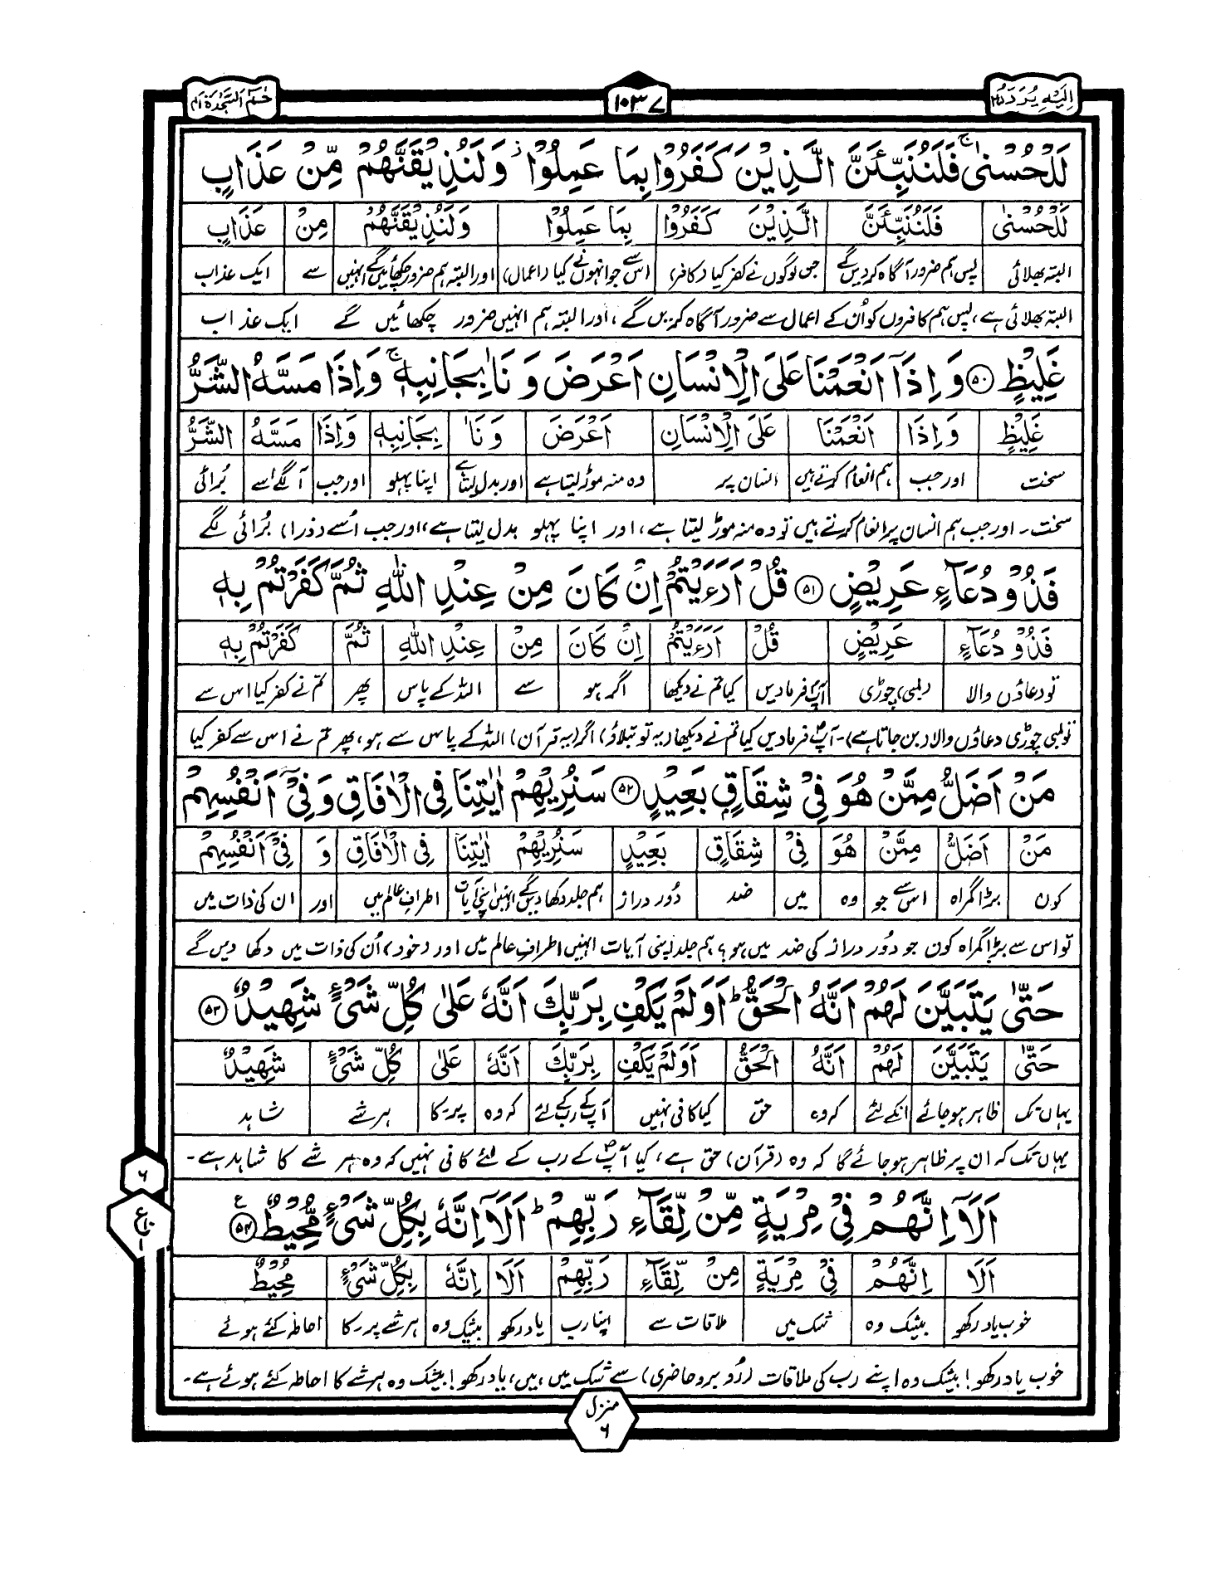 اِلَیْهِ یُرَدُّ ۲۵
۱۰۳۷
حٰمٓ السَّجْدَة ۴۱
لَلْحُسْنٰی ۚ فَلَنُنَبِّئَنَّ الَّذِیْنَ کَفَرُوْا بِمَا عَمِلُوْا ؗ وَ لَنُذِیْقَنَّهُمْ مِّنْ عَذَابٍ
لَلْحُسْنٰی فَلَنُنَبِّئَنَّ الَّذِیْنَ کَفَرُوْا بِمَا عَمِلُوْا وَ لَنُذِیْقَنَّهُمْ مِنْ عَذَابٍ
البتہ بھلائی پس ہم ضرور آگاہ کردیں گے جن لوگوں نے کفر کیا (کافر) اس سے جو انہوں نے کیا (اعمال) اور البتہ ہم ضرور چکھائیں گے انہیں سے ایک عذاب
البتہ بھلائی ہے، پس ہم کافروں کو اُن کے اعمال سے ضرور آگاہ کریں گے، اور البتہ ہم انہیں ضرور چکھائیں گے ایک عذاب
غَلِیْظٍ ۵۰ وَ اِذَاۤ اَنْعَمْنَا عَلَی الْاِنْسَانِ اَعْرَضَ وَ نَاٰ بِجَانِبِهٖ ۚ وَ اِذَا مَسَّهُ الشَّرُّ
غَلِیْظٍ وَ اِذَا اَنْعَمْنَا عَلَی الْاِنْسَانِ اَعْرَضَ وَ نَاٰ بِجَانِبِهٖ وَ اِذَا مَسَّهُ الشَّرُّ
سخت اور جب ہم انعام کرتے ہیں انسان پر وہ منہ موڑ لیتا ہے اور بدل لیتا ہے اپنا پہلو اور جب آ لگے اسے بُرائی
سخت۔ اور جب ہم انسان پر انعام کرتے ہیں تو وہ منہ موڑ لیتا ہے، اور اپنا پہلو بدل لیتا ہے، اور جب اُسے (ذرا) بُرائی لگے
فَذُوْ دُعَآءٍ عَرِیْضٍ ۵۱ قُلْ اَرَءَیْتُمْ اِنْ کَانَ مِنْ عِنْدِ اللّٰهِ ثُمَّ کَفَرْتُمْ بِهٖ
فَذُوْ دُعَآءٍ عَرِیْضٍ قُلْ اَرَءَیْتُمْ اِنْ کَانَ مِنْ عِنْدِ اللّٰهِ ثُمَّ کَفَرْتُمْ بِهٖ
تو دعاؤں والا (لمبی) چوڑی آپؐ فرمادیں کیا تم نے دیکھا اگر ہو سے اللہ کے پاس پھر تم نے کفر کیا اس سے
تو لمبی چوڑی دعاؤں والا (بن جاتا ہے)۔ آپؐ فرمادیں کیا تم نے دیکھا (یہ تو بتلاؤ) اگر (یہ قرآن) اللہ کے پاس سے ہو، پھر تم نے اس سے کفر کیا
مَنْ اَضَلُّ مِمَّنْ هُوَ فِیْ شِقَاقٍ بَعِیْدٍ ۵۲ سَنُرِیْهِمْ اٰیٰتِنَا فِی الْاٰفَاقِ وَ فِیْۤ اَنْفُسِهِمْ
مَنْ اَضَلُّ مِمَّنْ هُوَ فِیْ شِقَاقٍ بَعِیْدٍ سَنُرِیْهِمْ اٰیٰتِنَا فِی الْاٰفَاقِ وَ فِیْۤ اَنْفُسِهِمْ
کون بڑا گمراہ اس سے جو وہ میں ضد دُور دراز ہم جلد دکھا دیں گے انہیں اپنی آیات اطرافِ عالم میں اور ان کی ذات میں
تو اس سے بڑا گمراہ کون جو دُور دراز کی ضد میں ہو؟ ہم جلد اپنی آیات انہیں اطرافِ عالم میں اور (خود) اُن کی ذات میں دکھا دیں گے
حَتّٰی یَتَبَیَّنَ لَهُمْ اَنَّهُ الْحَقُّ ؕ اَوَ لَمْ یَکْفِ بِرَبِّكَ اَنَّهٗ عَلٰی کُلِّ شَیْءٍ شَهِیْدٌ ۵۳
حَتّٰی یَتَبَیَّنَ لَهُمْ اَنَّهُ الْحَقُّ اَوَ لَمْ یَکْفِ بِرَبِّكَ اَنَّهٗ عَلٰی کُلِّ شَیْءٍ شَهِیْدٌ
یہاں تک ظاہر ہوجائے انکے لئے کہ وہ حق کیا کافی نہیں آپؐ کے رب کے لئے کہ وہ پر۔کا ہر شے شاہد
یہاں تک کہ ان پر ظاہر ہوجائے گا کہ وہ (قرآن) حق ہے، کیا آپؐ کے رب کے لئے کافی نہیں کہ وہ ہر شے کا شاہد ہے۔
۶
اَلَاۤ اِنَّهُمْ فِیْ مِرْیَةٍ مِّنْ لِّقَآءِ رَبِّهِمْ ؕ اَلَاۤ اِنَّهٗ بِکُلِّ شَیْءٍ مُّحِیْطٌ ۵۴ ع
ع ۱۰ ۱
اَلَا اِنَّهُمْ فِیْ مِرْیَةٍ مِنْ لِّقَآءِ رَبِّهِمْ اَلَا اِنَّهٗ بِکُلِّ شَیْءٍ مُحِیْطٌ
خوب یاد رکھو بیشک وہ شک میں ملاقات سے اپنا رب یاد رکھو بیشک وہ ہر شے پر۔کا احاطہ کئے ہوئے
خوب یاد رکھو! بیشک وہ اپنے رب کی ملاقات (رُو برو حاضری) سے شک میں ہیں، یاد رکھو! بیشک وہ ہر شے کا احاطہ کئے ہوئے ہے۔
منزل
۶